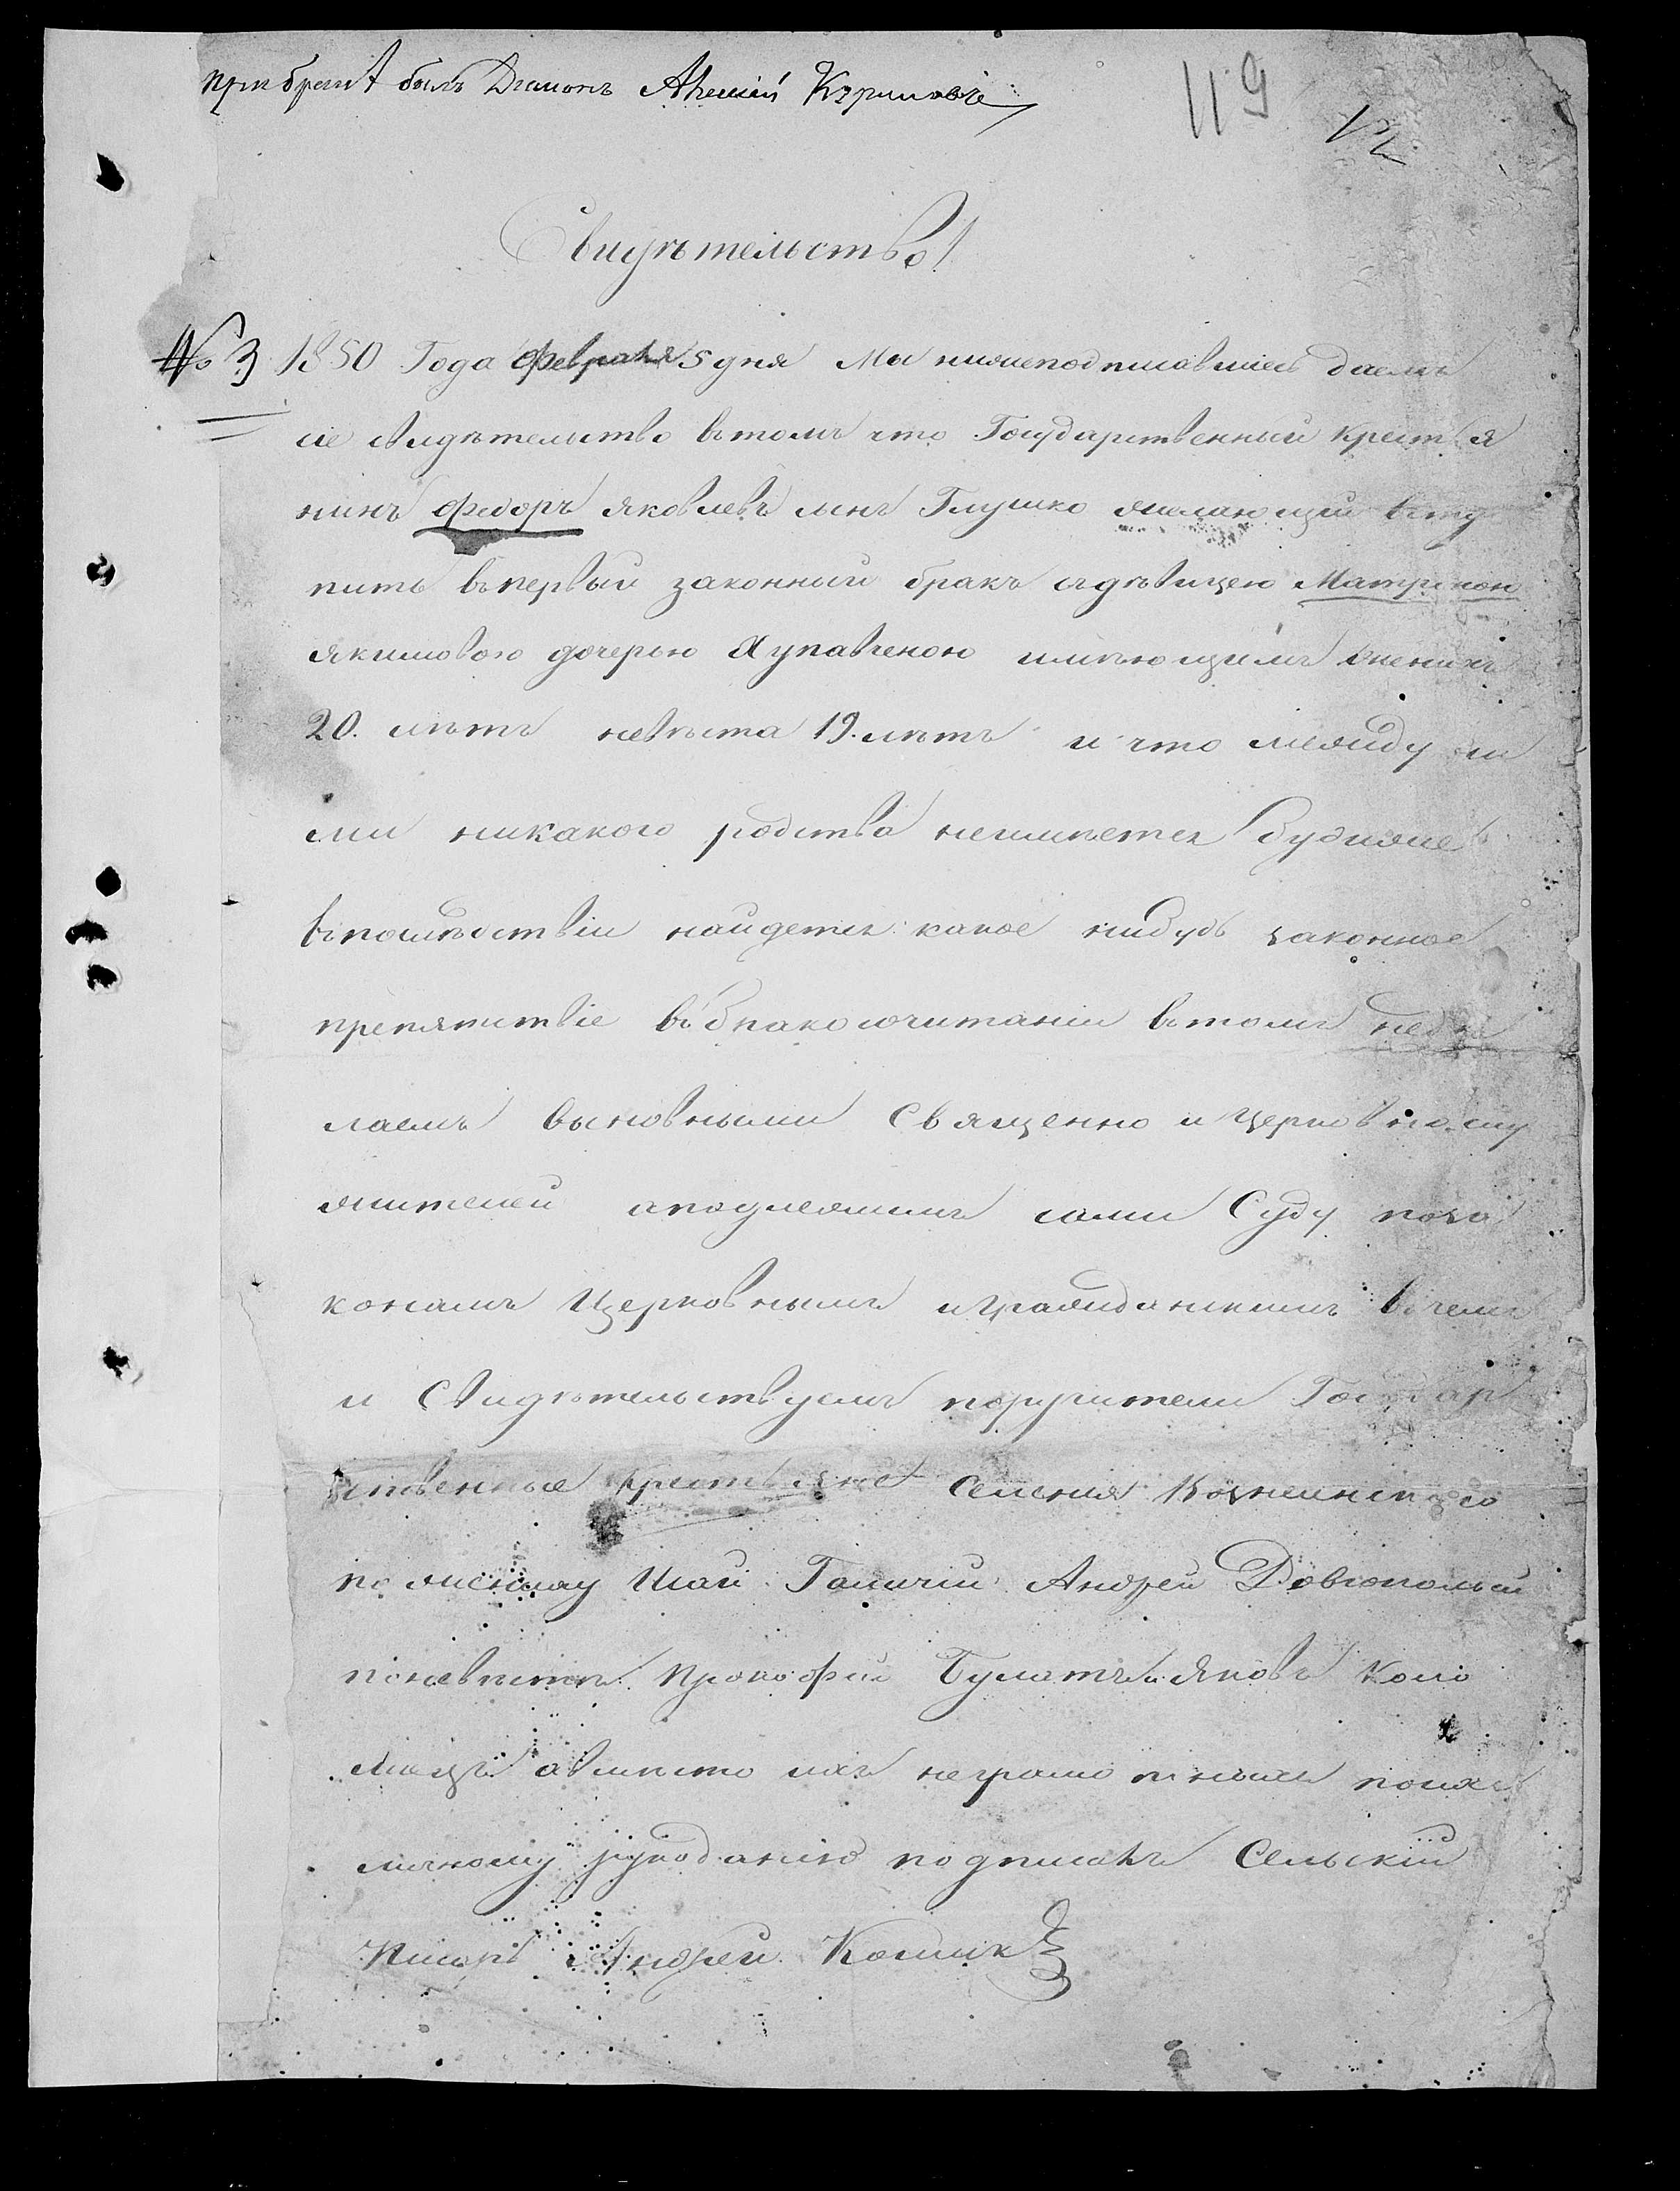 при браке былъ Диаконъ Алексей
119
12
Свидѣтельство
№ 3 1850 Года февраля 5 дня Мы нижеподписавшиесь даемъ
сіе свидѣтельство втомъ что Государственный крестья
нинъ Федоръ Яковлевъ сынъ Глушко желающій всту
пить въпервый законный бракъ сдѣвицею Матроною
Якимовою дочерью имѣющимъ женихъ
20. лѣтъ невѣста 19. лѣтъ и что между ни
ми никакого родства неимѣется будиже
въпослѣдствіи найдется какое нибудь законное
препятствіе въ бракосочитаніи втомъ недѣ
лаемъ выновными Священно и церковно слу
жителей аподлежимъ сами Суду поза
конамъ Церковнымъ игражданскимъ вчемъ
и Свидѣтельствуемъ поручители Государ
ственные крестьяне Селенія
по жениху Андрей
поневѣстѣ Прокофій Булатъ и Яковъ Коло
авмѣсто ихъ неграмотныхъ поих
личному рукоданію подписалъ Сельскій
Писарь Андрей